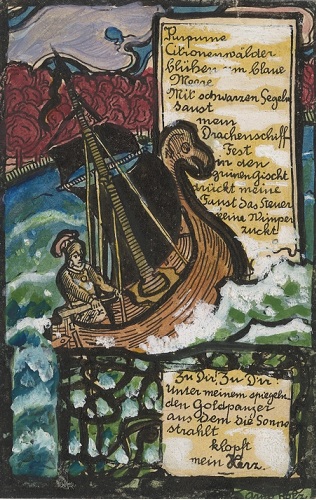 Purpurne
Citronenwälder
blühen um blaue
Meere
Mit schwarzen Segeln
saust
mein
Drachenschiff
Fest
in den
grünen Gischt
drückt meine
Faust das Steuer
keine Wimper
zuckt
Zu Dir! Zu Dir!
Unter meinem spiegeln
den Goldpanzer
aus dem die Sonne
strahlt
klopft
mein Herz.
Arno Holz